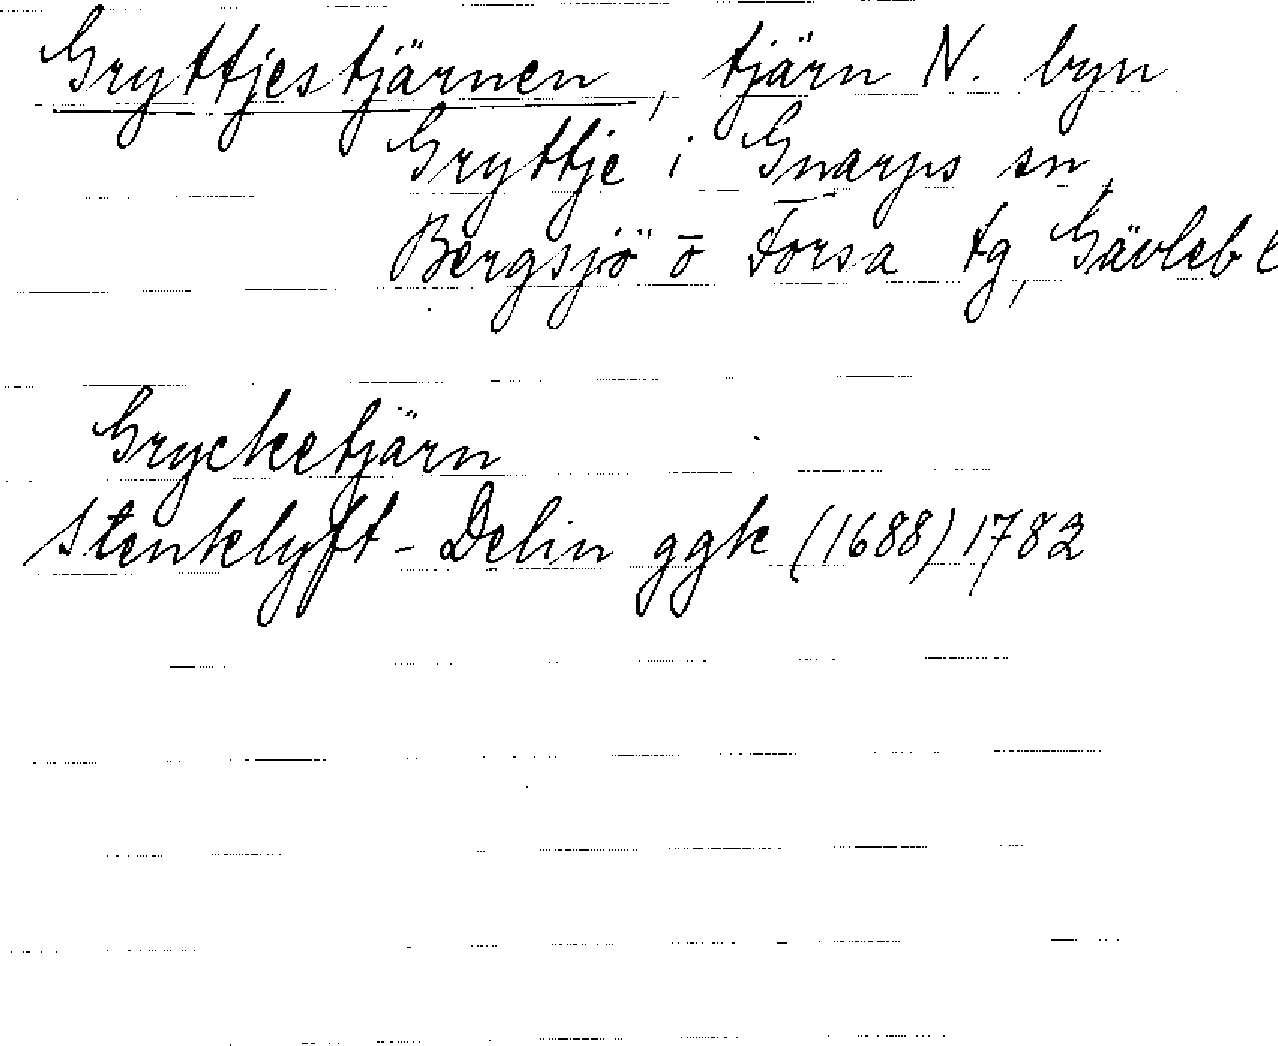 Gryttjestjärnen, tjärn N. byn
Gryttje i Gnarps sn,
Bergsjö o Forsa tg, Gävleb l
Grycketjärn
Stenklyft-Delin ggk (1688) 1782